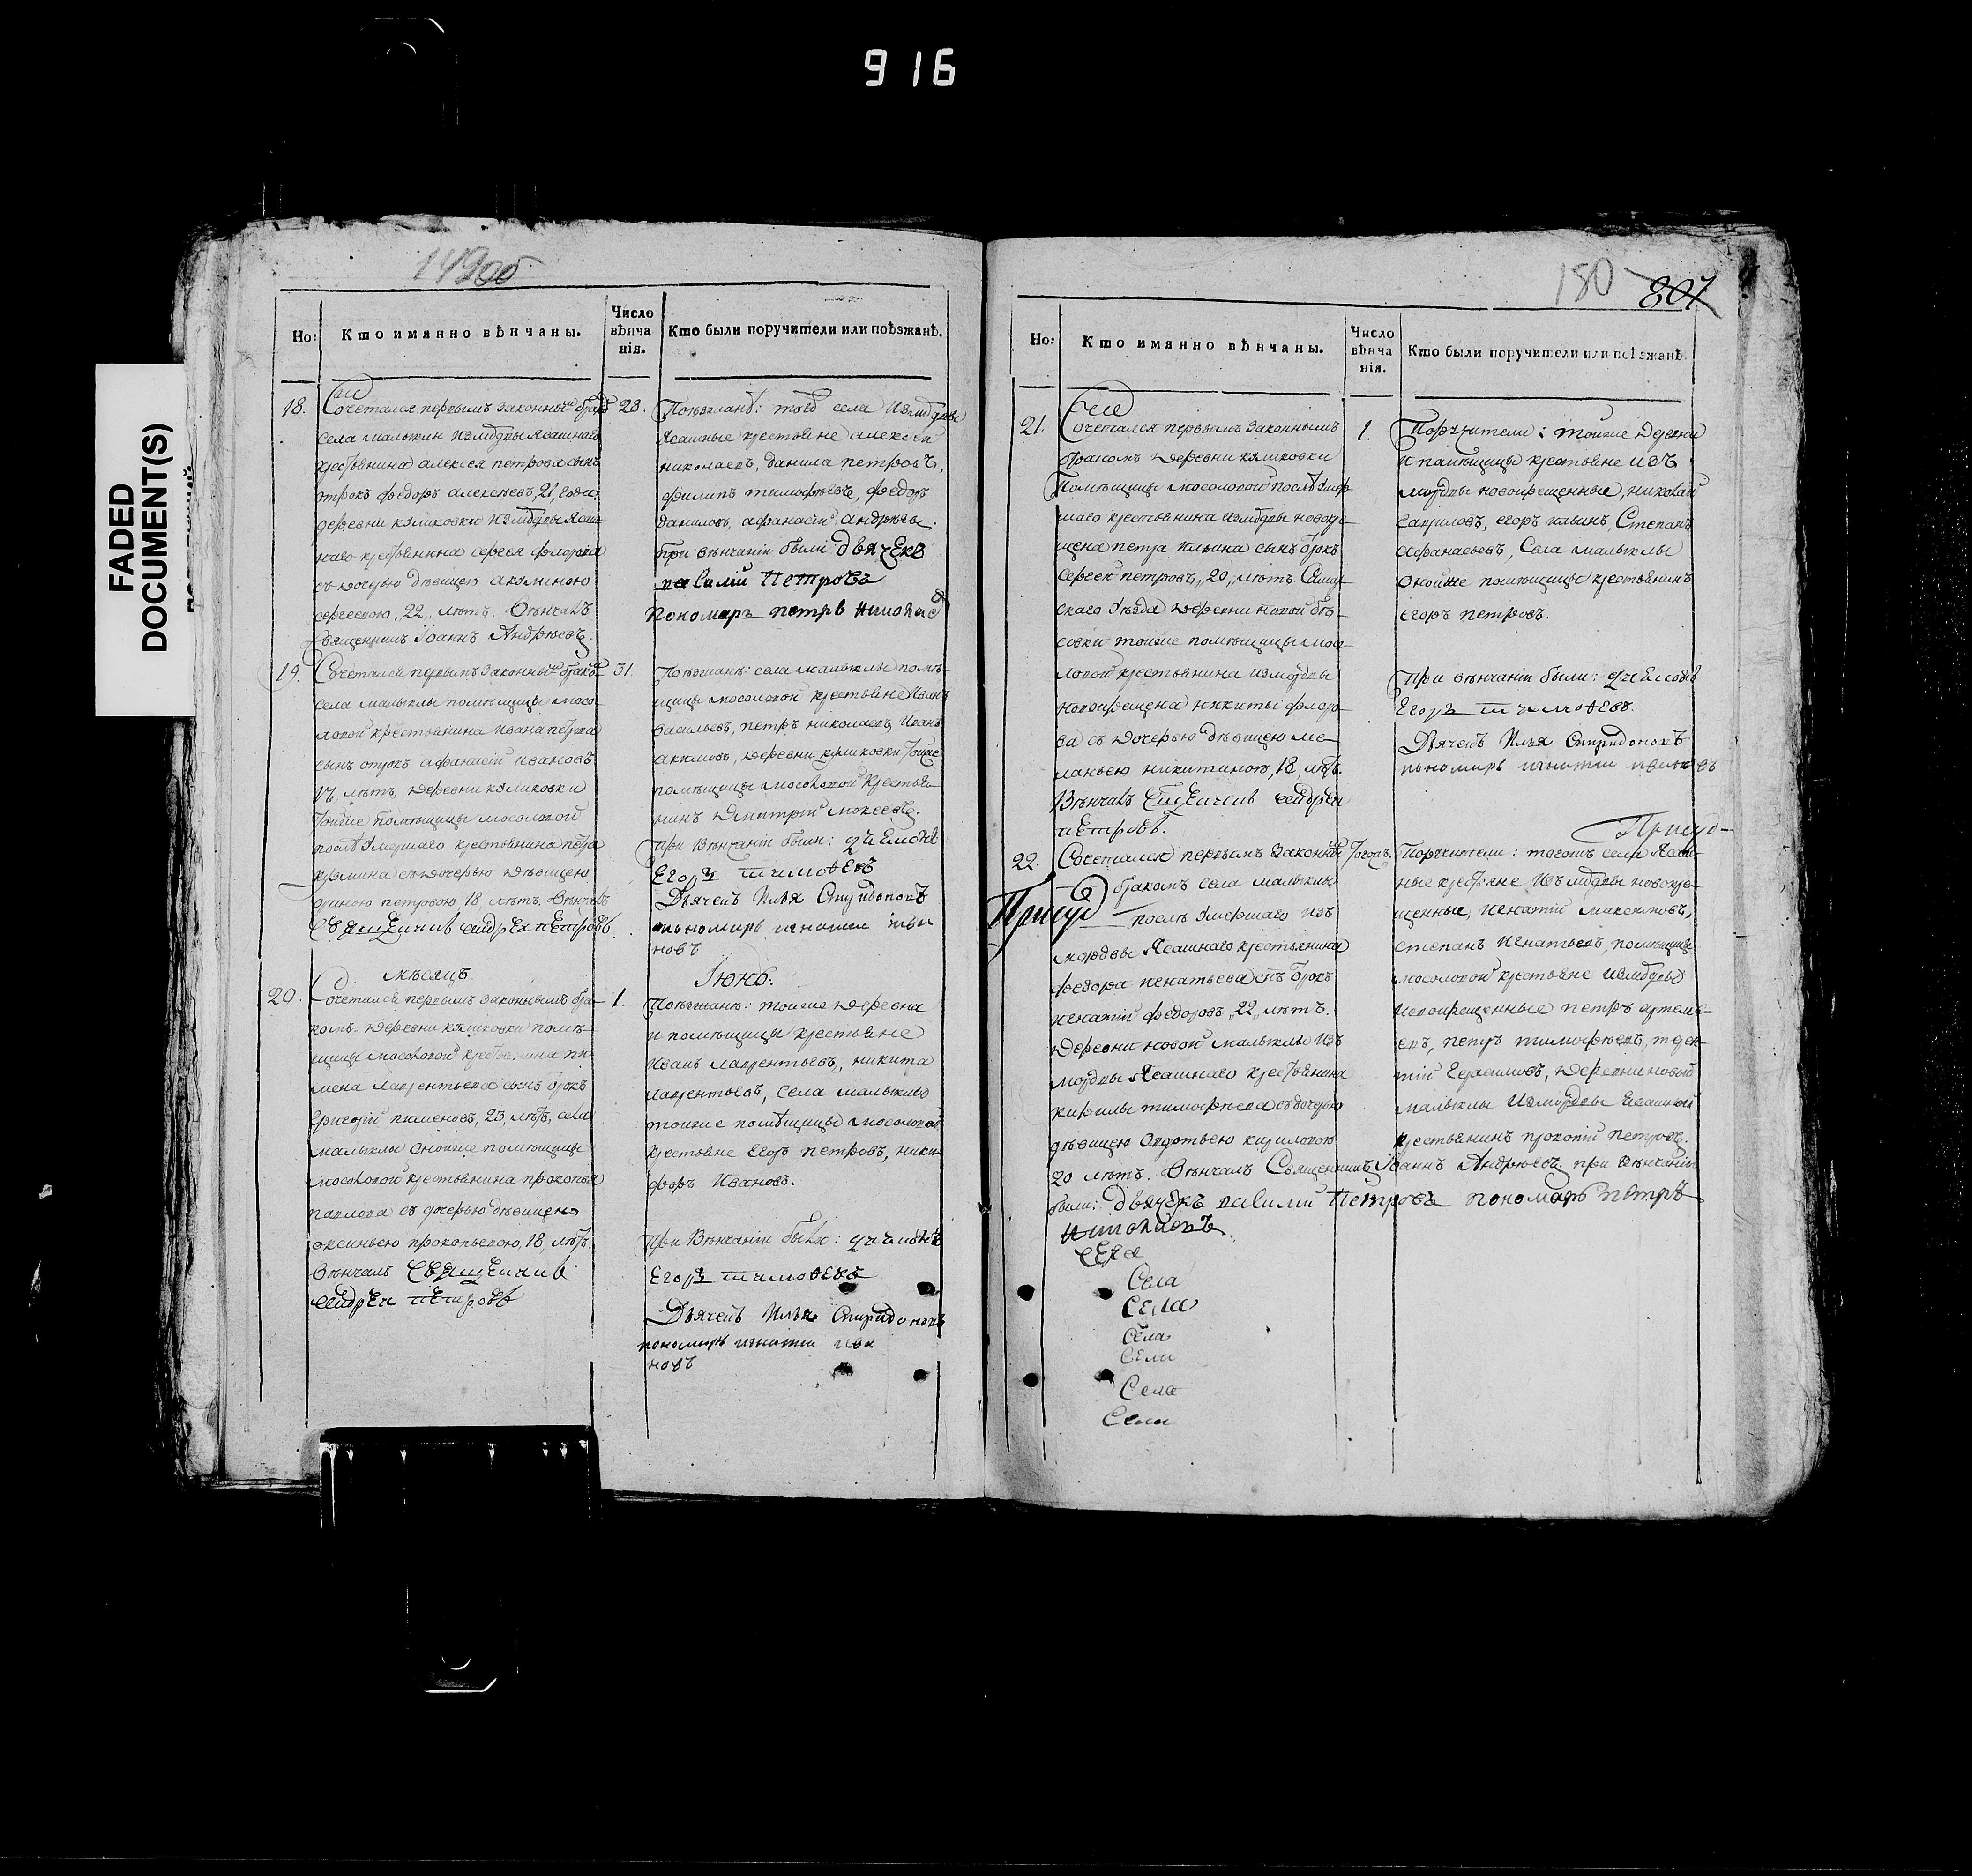 916
FADED
DOCUMENT(S)
149об
Но:
Кто имянно вѣнчаны.
Число
вѣнча
нія.
Кто были поручители или поѣзжанѣ.
18.
Сочетался первымъ законнымъ бракомъ
села малыклы измордвы ясашнаго
крестьянина алексея петрова сынъ
отрокъ федоръ алексеевъ, 21, года
деревни куликовки измордвы ясаш-
наго крестьянина сергея флорова
съ дочерью девицею акулиною
сергеевою, 22, лѣтъ. Вѣнчалъ
Священникъ Іоаннъ Андрѣевъ.
28.
Поѣзжанѣ: того села Измордвы
Ясашные крестьяне алексей
николаевъ, данила петровъ,
филипъ тимофѣевъ, федоръ
даниловъ, афанасій андрѣевъ.
При вѣнчаніи были дьячекъ
василій Петровъ
Пономарь петръ Николаев
19.
Сочетался первымъ законнымъ бракомъ
села малыклы помѣщицы мосо-
ловой крестьянина Ивана петрова
сынъ отрокъ афанасій ивановъ
17, лѣтъ, деревни куликовки
тоиже помѣщицы мосоловой
послѣ умершаго крестьянина петра
съ дочерью девицею
петровою, 18 лѣтъ. Вѣнчалъ
Священникъ андрей петровъ
31.
Поѣзжанѣ: села малыклы помѣ-
щицы мосоловой крестьяне Иванъ
васильевъ, петръ николаевъ Иванъ
акимовъ, деревни куликовки тоиже
помѣщицы мосоловой крестья-
нинъ Дмитрій мокеевъ.
при Вѣнчаніи были:
Егоръ тимофеевъ
Дьячекъ Илья Спиридоновъ
пономарь игнатии ива
новъ
мѣсяцъ
Іюнь:
20.
Сочетался первымъ законнымъ бра-
комъ деревни куликовки помѣ-
щицы мосоловой крестьянина пи
мена лаврентьева сынъ отрокъ
Григорій пименовъ, 23, лѣтъ, села
малыклы оноиже помѣщицы
мосоловой крестьянина прокопья
павлова съ дочерью девицею
аксиньею прокопьевою, 18, лѣтъ.
Вѣнчалъ Священникъ
андреи петровъ
1.
Поѣзжанѣ: тоиже деревни
и помѣщицы крестьяне
Иванъ лаврентьевъ, никита
лаврентьевъ, села малыклы
тоиже помѣщицы мосоловой
крестьяне Егоръ петровъ, ники
форъ Ивановъ.
При Вѣнчаніи были:
Егоръ тимофеевъ
Дьячекъ Илья Спиридоновъ
пономарь игнатии ива
новъ
180
807
Но:
Кто имянно вѣнчаны.
Число
вѣнча
нія.
Кто были поручители или поѣзжанѣ.
21.
Сочетался первымъ законнымъ
бракомъ деревни куликовки
Помѣщицы мосоловой послѣ умер-
шаго крестьянина измордвы новокре-
щена петра ильина сынъ отрокъ
Сергей петровъ, 20, лѣтъ
скаго уѣзда деревни новой бѣ-
совки тоиже помѣщицы мосо-
ловой крестьянина измордвы
новокрещена никиты флоро-
ва съ дочерью девицею ме-
ланьею никитиною, 18, лѣтъ.
Вѣнчалъ Священникъ андреи
петровъ.
1.
Поручители: тоиже деревни
и помѣщицы крестьяне изъ
мордвы новокрещенные, николай
гавриловъ, егоръ Степанъ
афанасьевъ, Села малыклы
оноиже помѣщицы крестьянинъ
егоръ петровъ.
При вѣнчаніи были:
Егоръ тимофеевъ.
Дьячекъ Илья Спиридоновъ
пономарь игнатии ивановъ
Присуд-
22.
Сочетался первымъ законнымъ
бракомъ села малыклы
Присуд
послѣ умершаго изъ
мордвы ясашнаго крестьянина
федора игнатьева сынъ отрокъ
игнатій федоровъ, 22, лѣтъ.
деревни новой малыклы изъ
мордвы ясашнаго крестьянина
кирилы тимофѣева съ дочерью
девицею Авдотьею кириловою
20 лѣтъ. Вѣнчалъ Священникъ Іоаннъ Андрѣевъ. при Вѣнчаніи
были: дьячекъ василий Петровъ пономарь петръ
Николаевъ
Поручители: тогожъ села Ясаш-
ные крестьяне изъ мордвы новокре-
щенные, игнатій максимовъ,
степанъ игнатьевъ, помѣщицы
мосоловой крестьяне измордвы
новокрещенные петръ артемь-
евъ, петръ тимофѣевъ,
герасимовъ, деревни новой
малыклы измордвы ясашной
крестьянинъ прокопій петровъ.
села
Села
Села
Села
Села
Села
Села